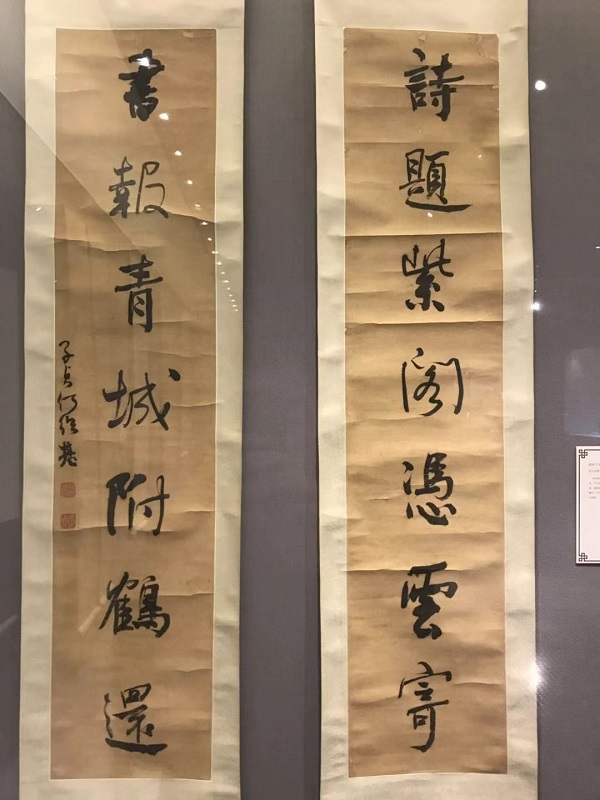 詩題紫閣憑雲寄
書報青城附鶴還
子貞何紹基